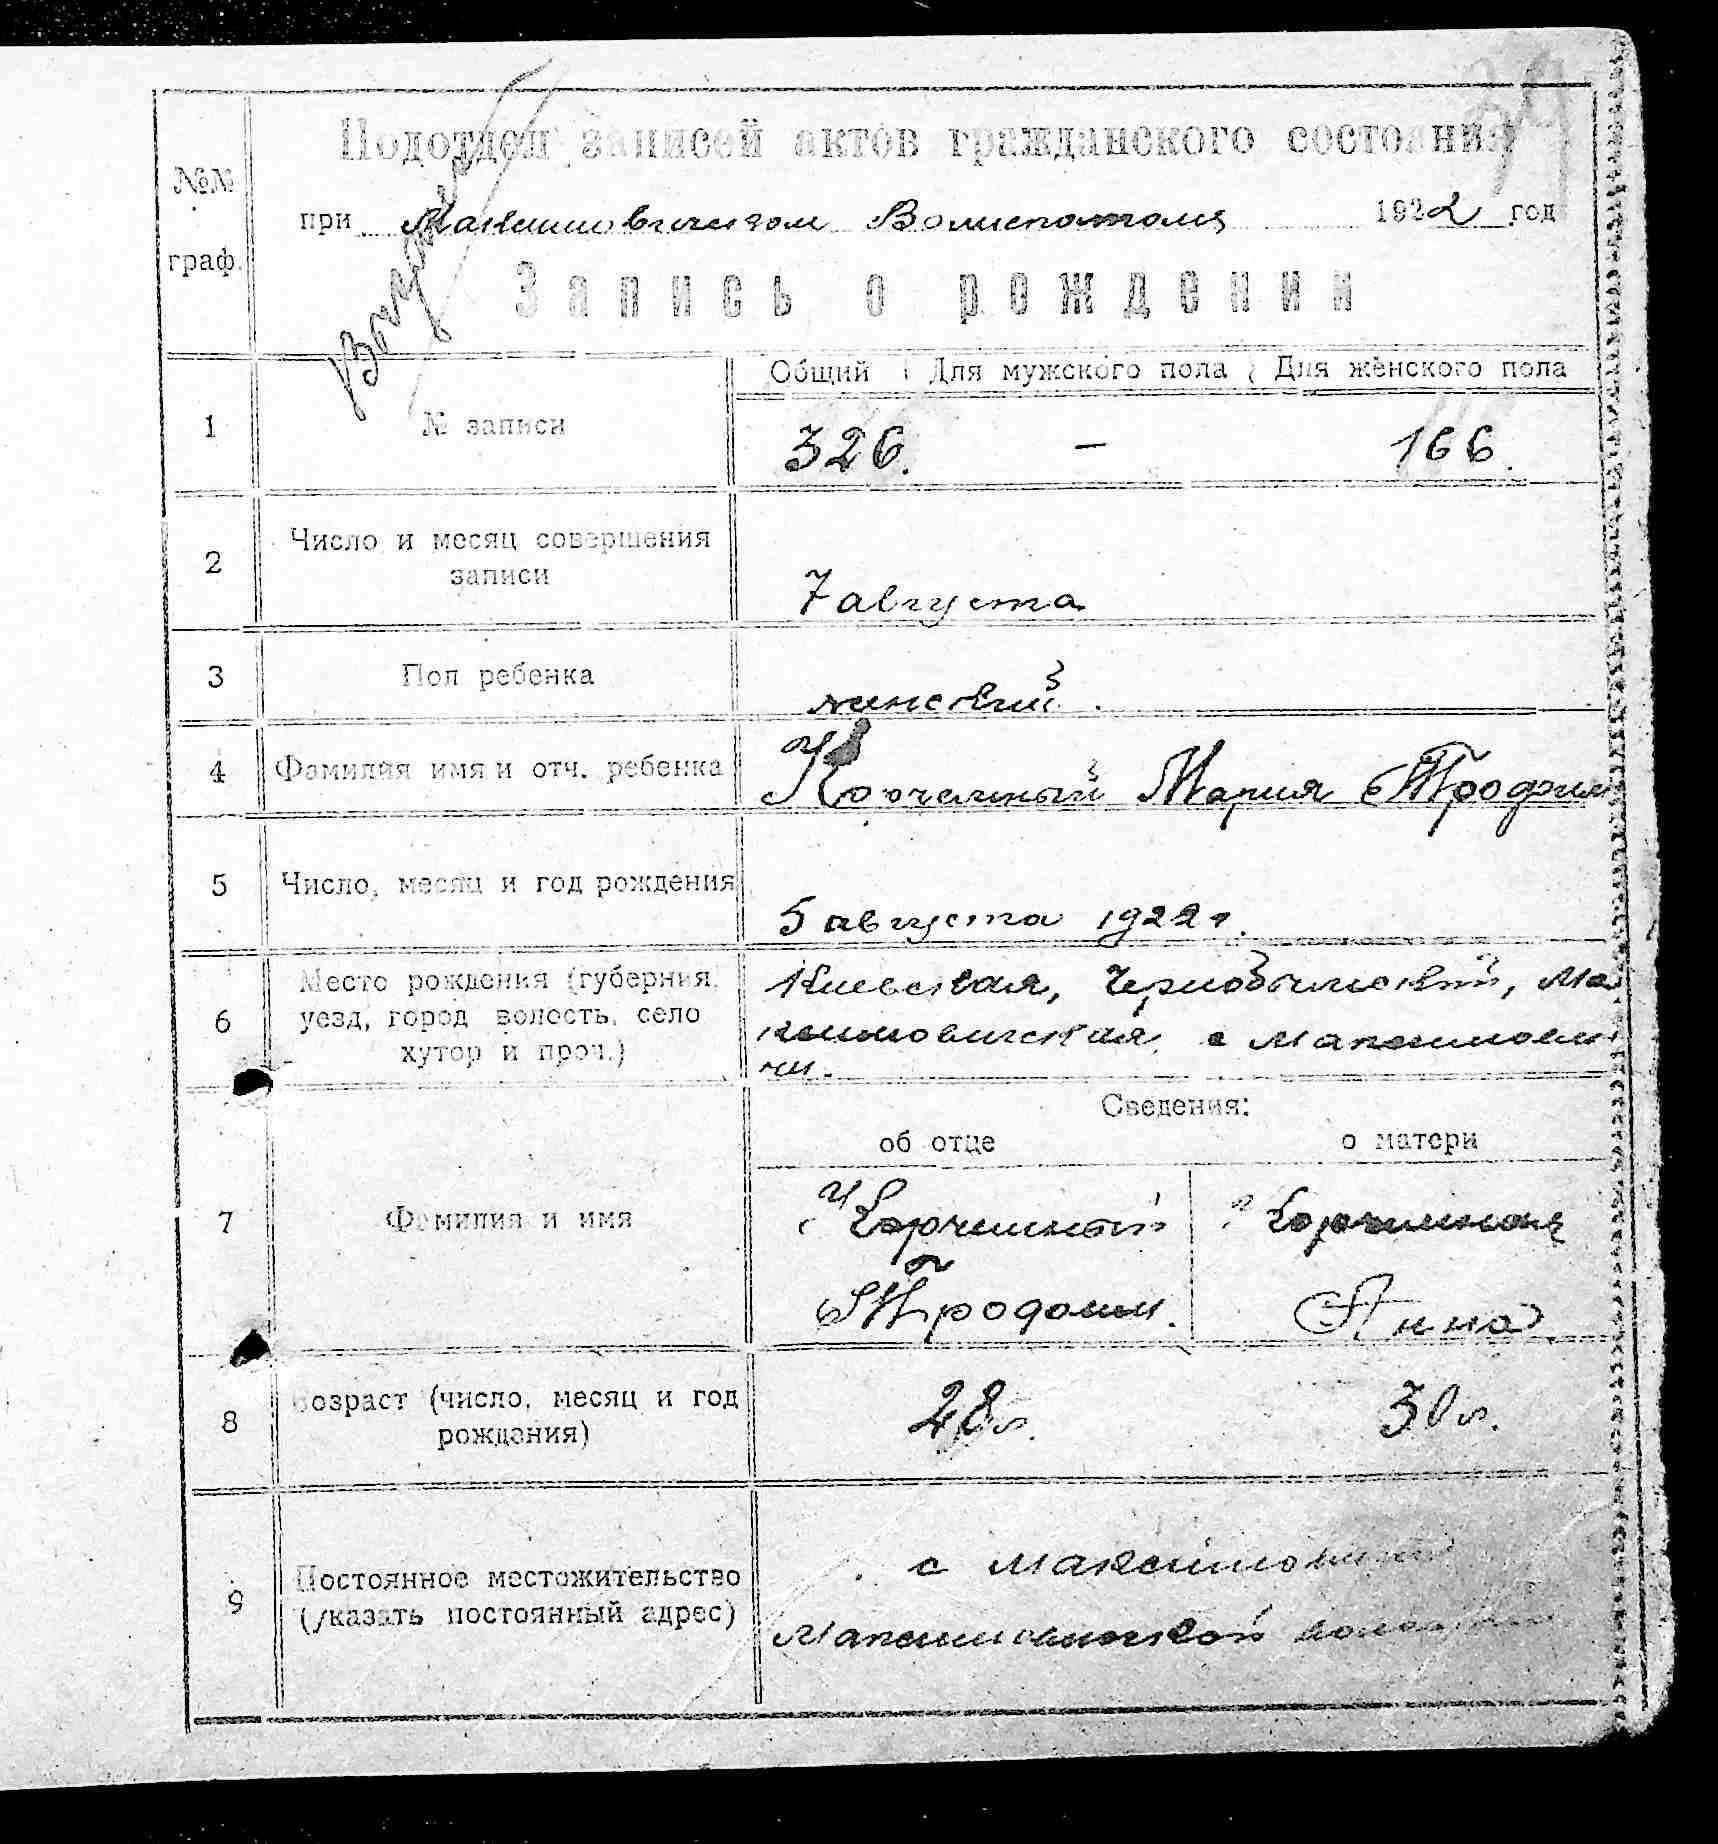 Подотдел записей актов гражданского состояния
№№
граф.
при Максимовичском Волисполкоме 1922 год
Запись о рождении
Общий Для мужского пола Для женского пола
1 № записи 326. — 166.
2 Число и месяц совершения
записи
7 августа
3 Пол ребенка женский.
4 Фамилия имя и отч. ребенка Мария Трофим
5 Число, месяц и год рождения
5 августа 1922 г.
6 Место рождения (губерния,
уезд, город волость, село
хутор и проч.)
Киевская, Чернобыльский, Ма
ксимовичская, с Максимови
чи.
Сведения:
об отце о матери
7 Фамилия и имя
Трофим. Анна.
8 Возраст (число, месяц и год
рождения)
28 л. 30 л.
9 Постоянное местожительство
(указать постоянный адрес)
с Максимовичи
Максимовичской волости